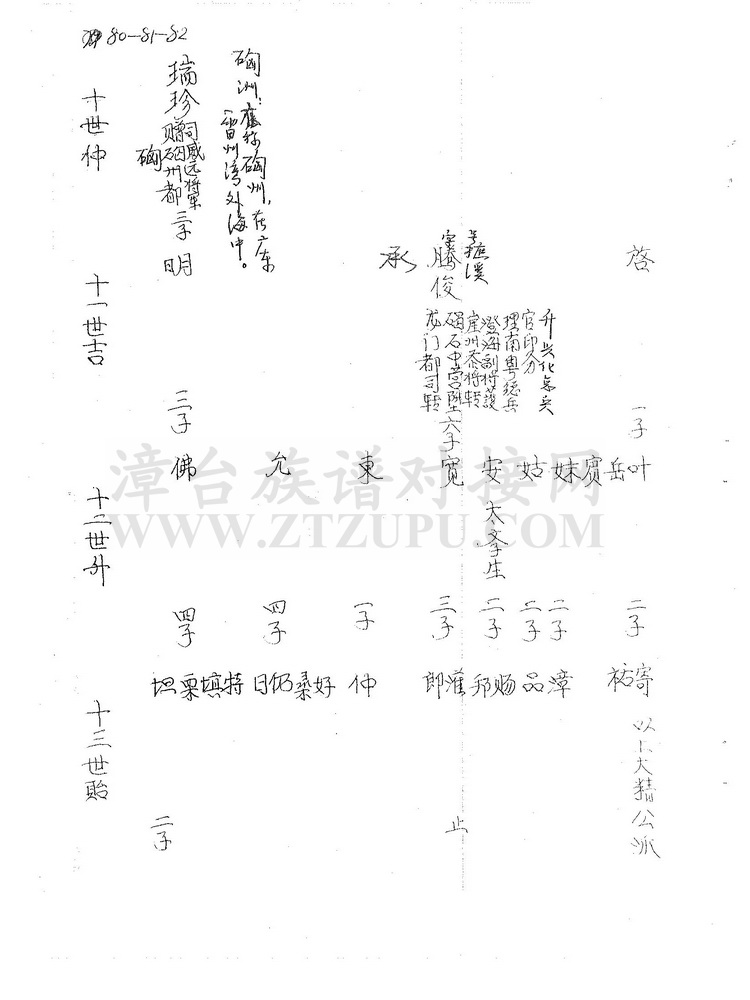 80-81-82
十世仲
瑞珍
赠硇州都
司威远将军
硇
三子
硇洲：旧称硇州，在广东
雷州湾外海中。
十一世吉
明
承
腾俊
号樵溪
龙门都司转
碣石中营坠
崖州参将转
澄海副将护
理南粤总兵
官印务
升兴化总兵
啓
三子
六子
一子
十二世升
佛
允
東
寬
安
太文学生
姑
妹
賓
岳
叶
四子
四子
一子
三子
二子
二子
二子
二子
十三世貽
坦
栗
填
特
日
仍
桑
好
仲
郎
漼
邦
赐
品
漳
祐
寄
二子
止
以上大精公派
漳台族谱对接网
WWW.ZTZUPU.COM